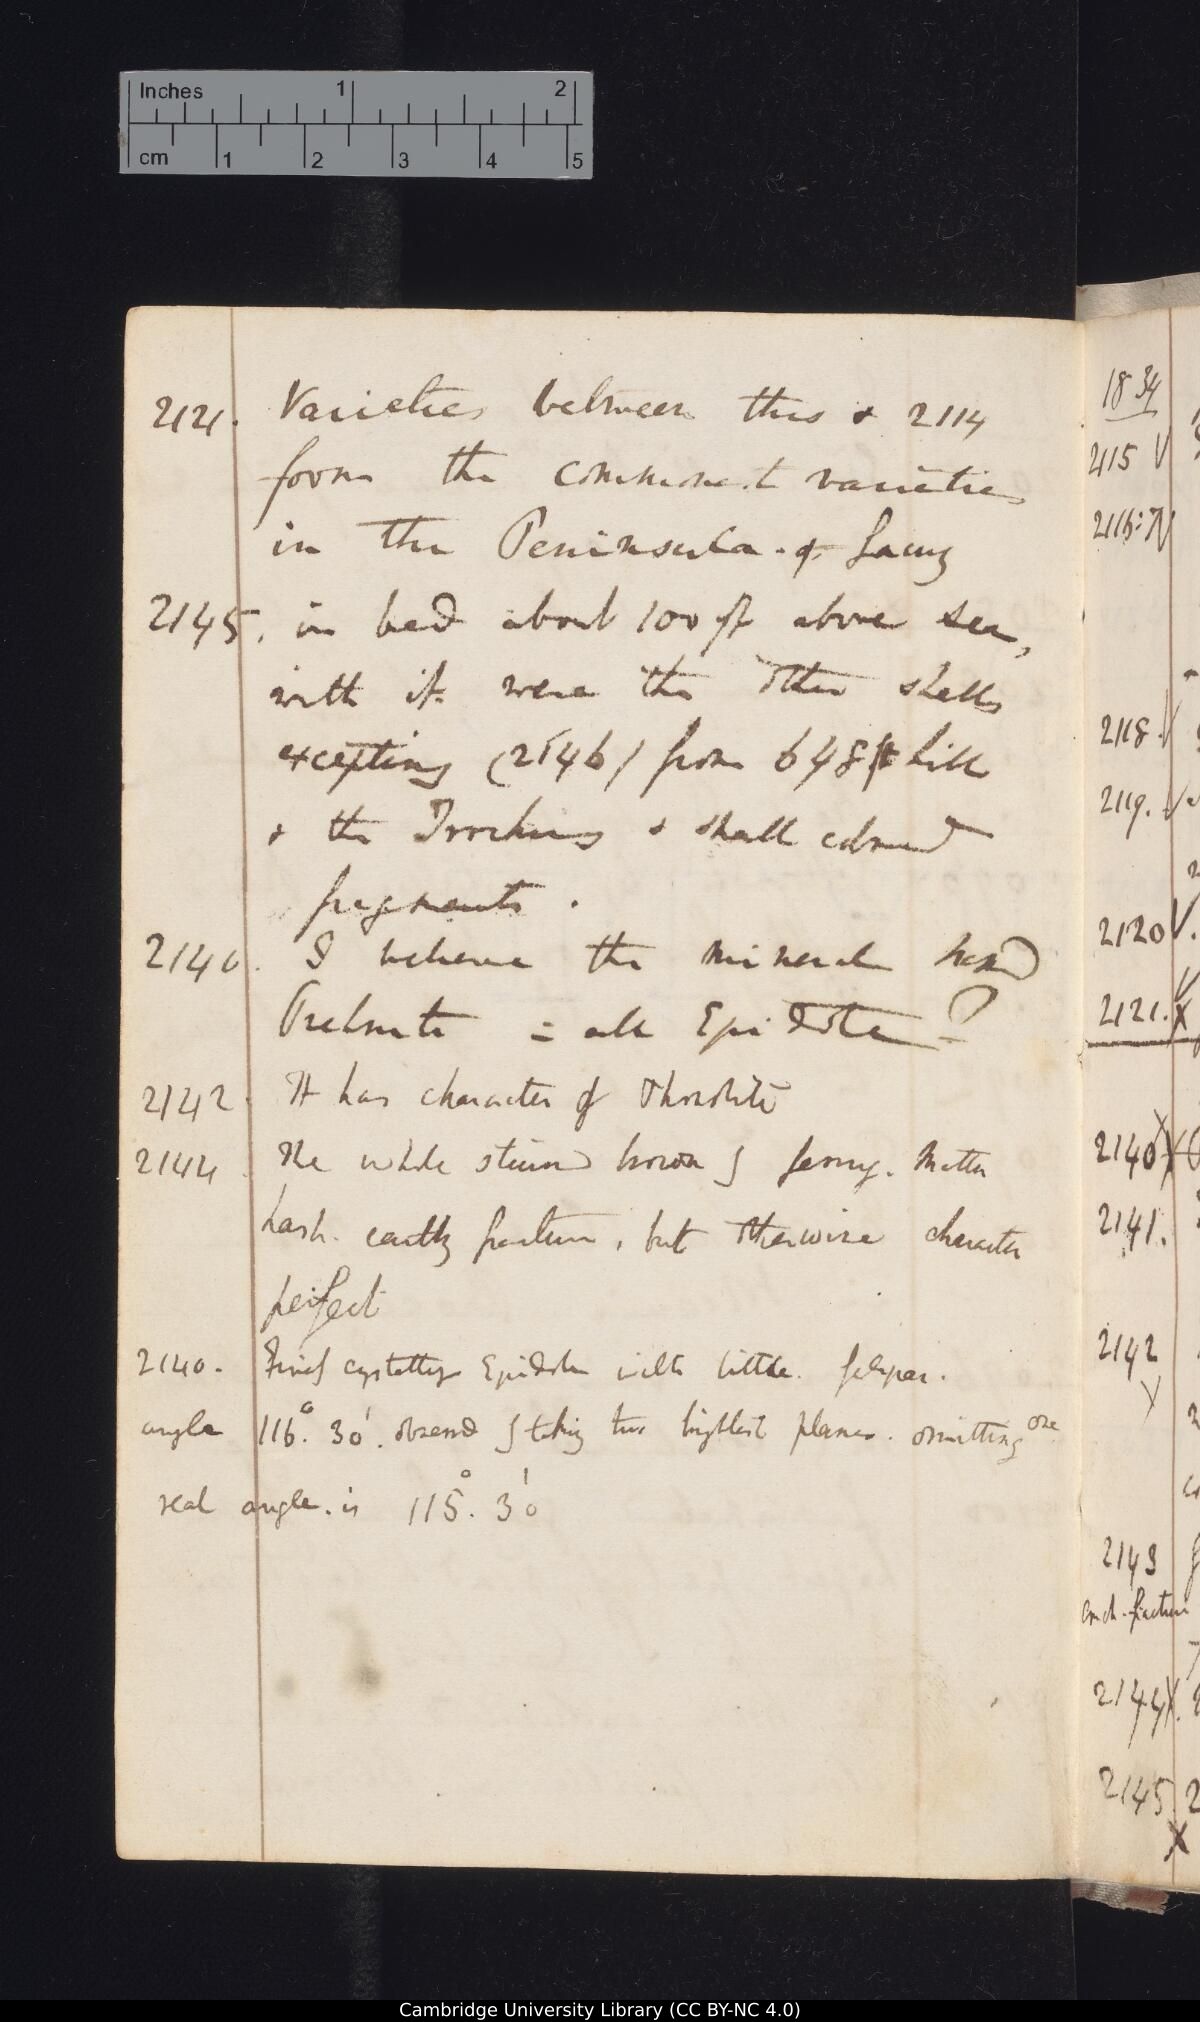 Inches 1 2
cm 1 2 3 4 5
2121. Varieties between this & 2114
form the commonest varieties
in the Peninsula of Lacuy
2145. in bed about 100 ft above sea,
with it were the other shells
excepting (2146) from 648 ft hill
& the Trochus & small coloured
fragments.
2140. I believe the mineral named
Prehnite = all Epidote?
2142. It has character of Phonolite
2144. The whole stained brown by ferrug. matter
harsh. earthy fracture, but otherwise character
perfect
2140. Finely crystally Epidote with little felspar.
angle 116°. 30'. observed by taking two brightest planes. omitting one
real angle. is 115°. 30'
1834
2115 V
2116:
2118. V
2119. V
2120 V.
2121. X
2140 X
2141.
2142
2143
Conch. fracture
2144 X.
2145 2
X
Cambridge University Library (CC BY-NC 4.0)